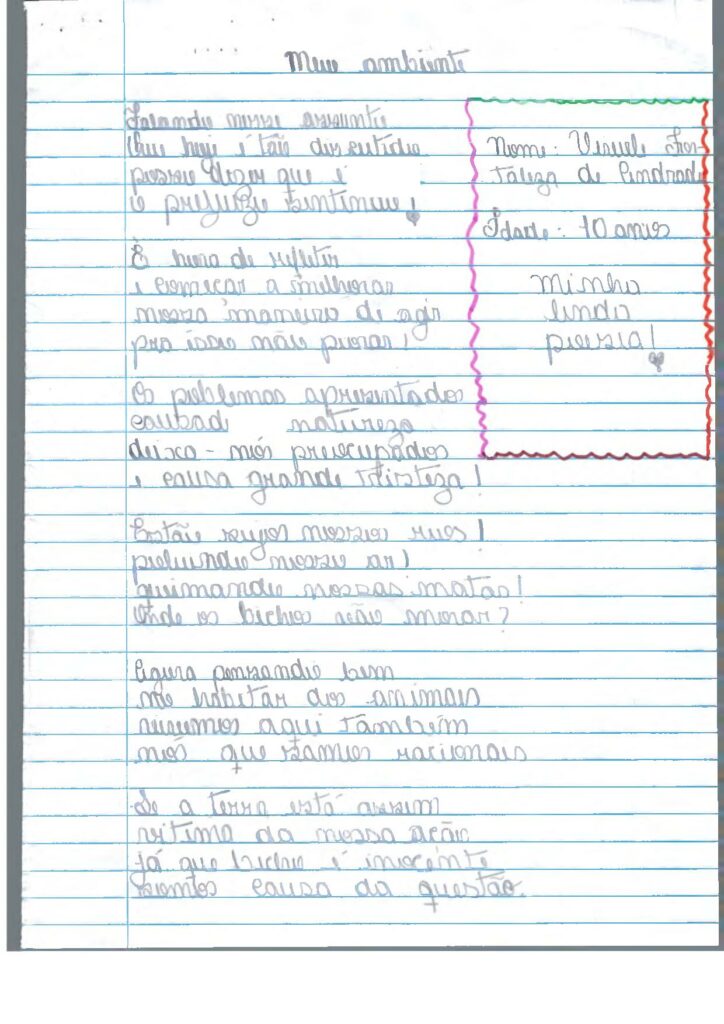 Meu ambiente
Falando nesse assunto
Que hoje é tão discutido
posso dizer que é
o prejuízo contínuo!
É hora de refletir
e começar a melhorar
nossa maneira de agir
pra isso não piorar!
Os problemas apresentados
causad natureza
deixa-nós preocupados
e causa grande tristeza!
Estão sujos nossos rues!
poluindo nosso ar!
queimando nossas matas!
Onde os bichos irão morar?
Agora pensando bem
no habitar dos animais
vivemos aqui também
nós que somos racionais
Se a terra está assim
vitima da nossa ação
Já que bicho é inocente
somos causa da questão.
Nome:
taleza de Andrade
Idade: 10 anos
Minha
linda
poesia!